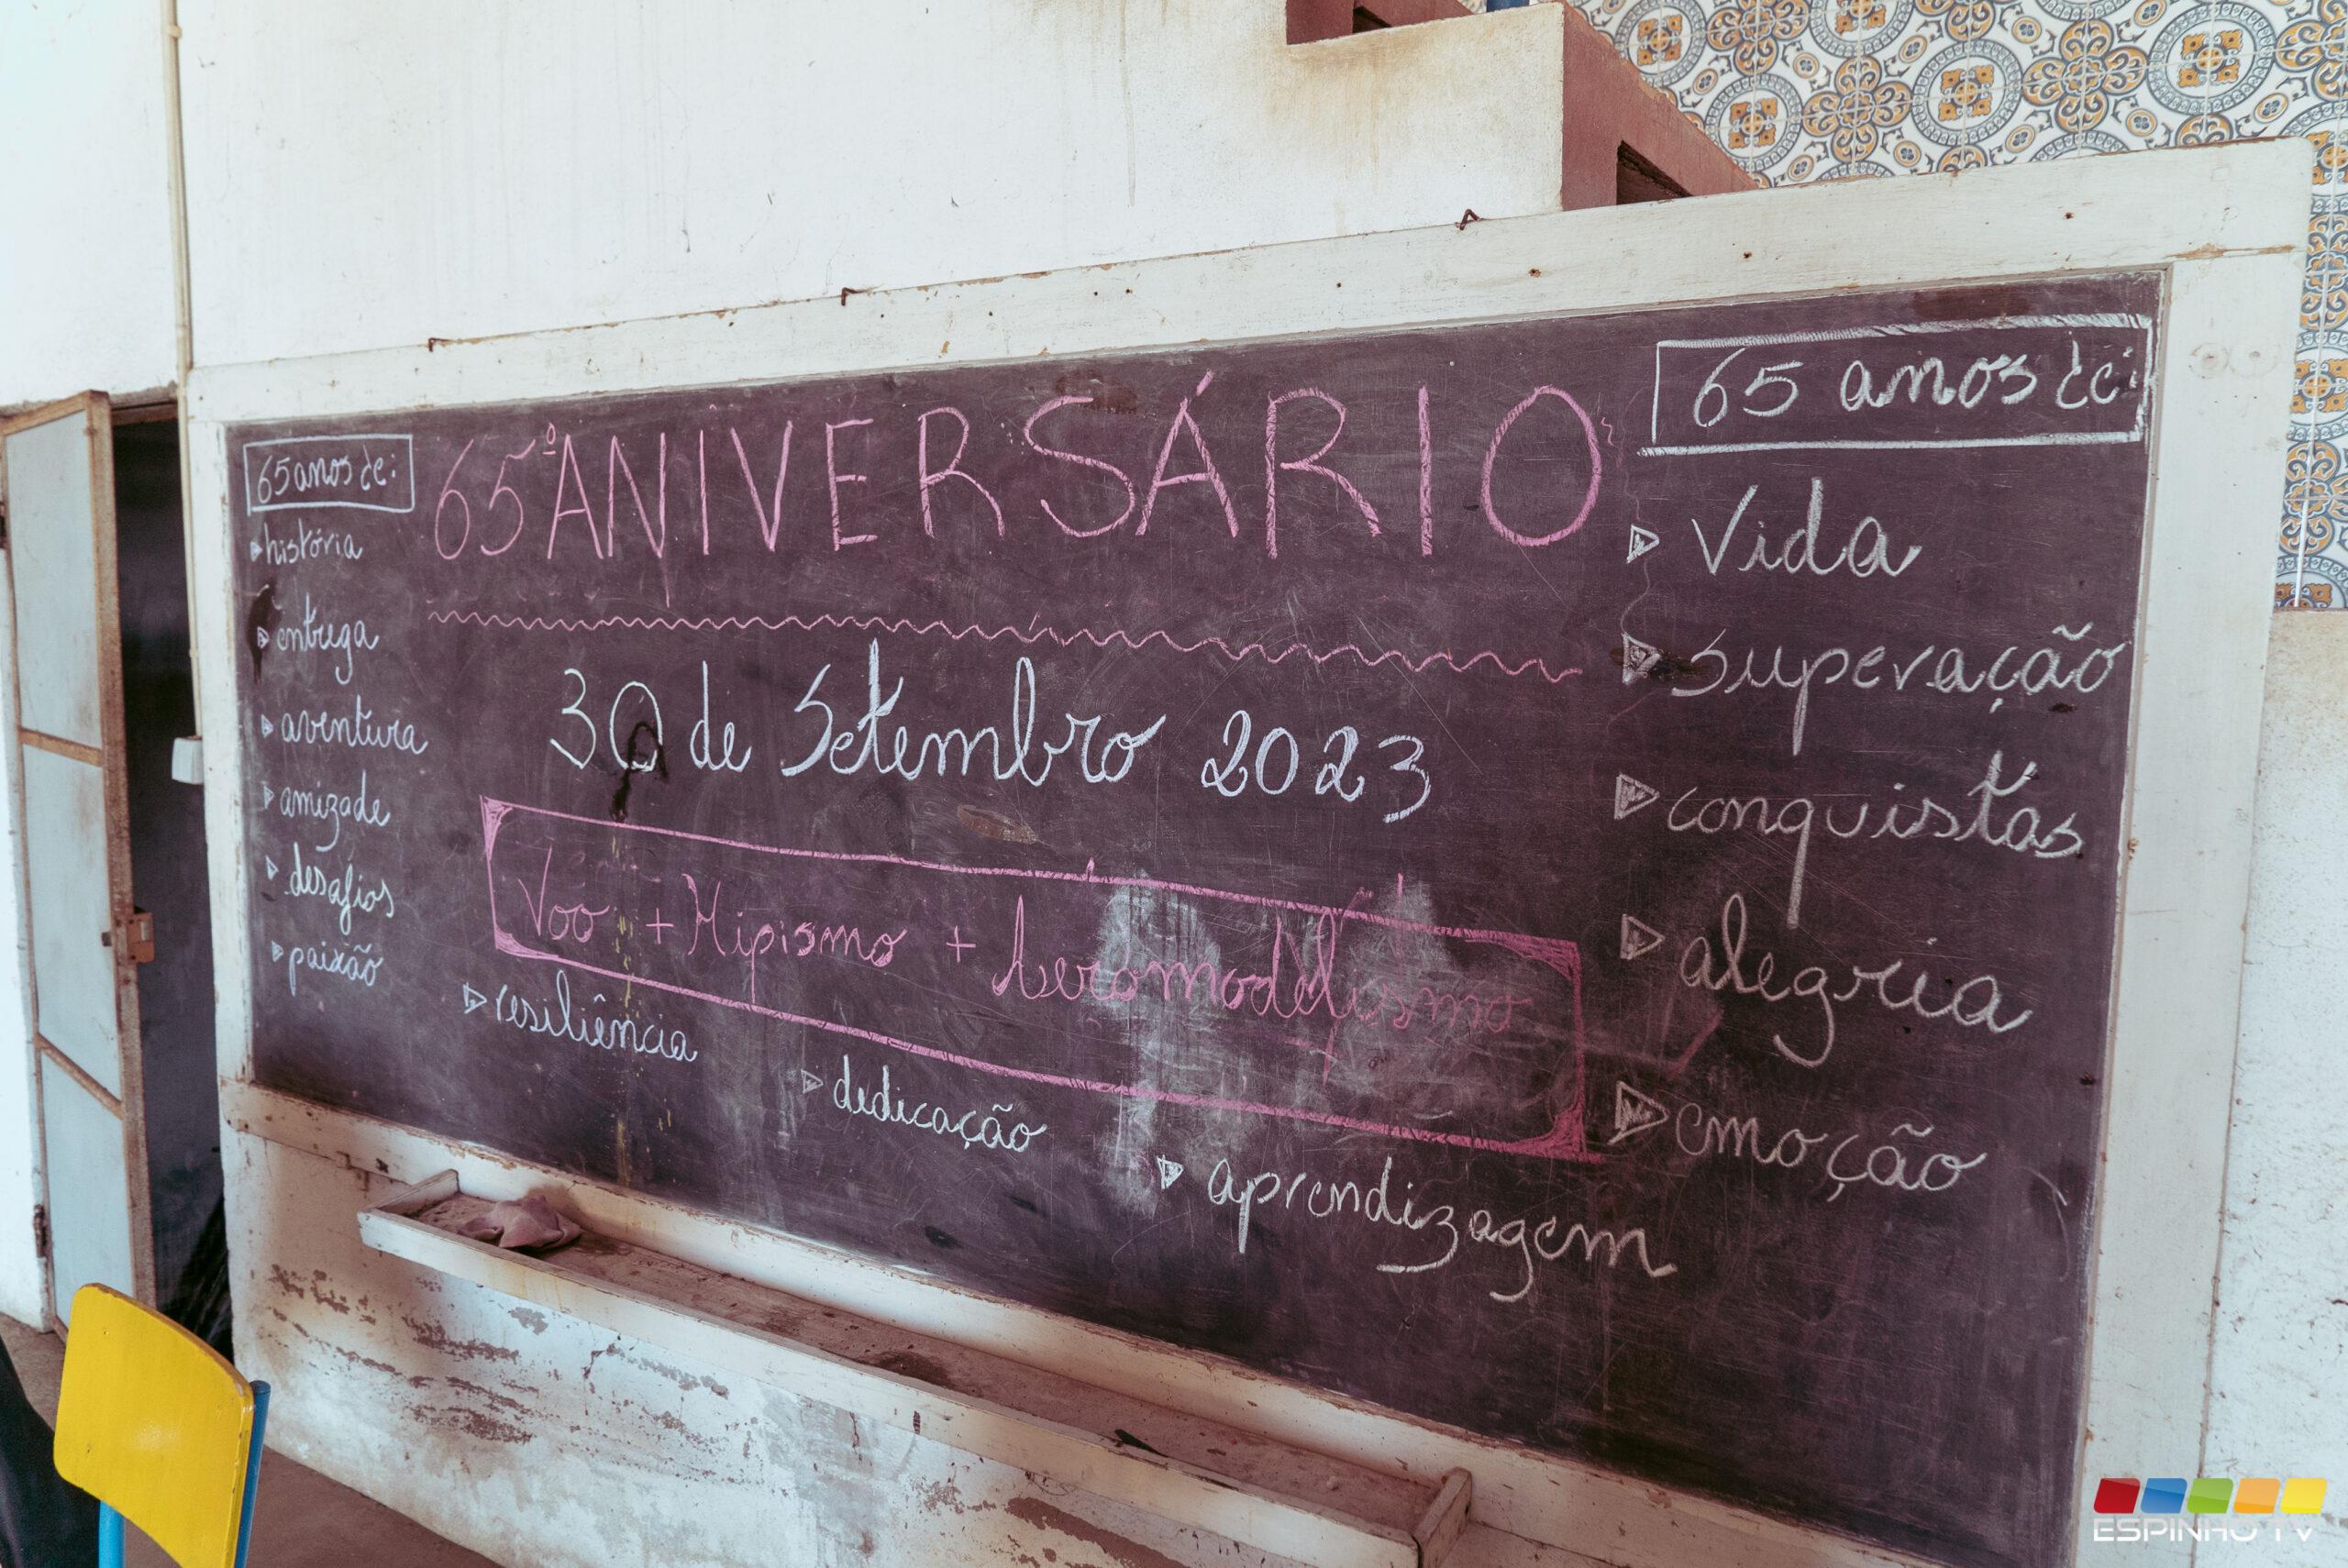 65 anos de:
história
entrega
aventura
amizade
desafios
paixão
65º ANIVERSÁRIO
30 de Setembro 2023
Voo + Hipismo + Aeromodelismo
resiliência
dedicação
aprendizagem
65 anos de:
Vida
superação
conquistas
alegria
emoção
ESPINHO TV